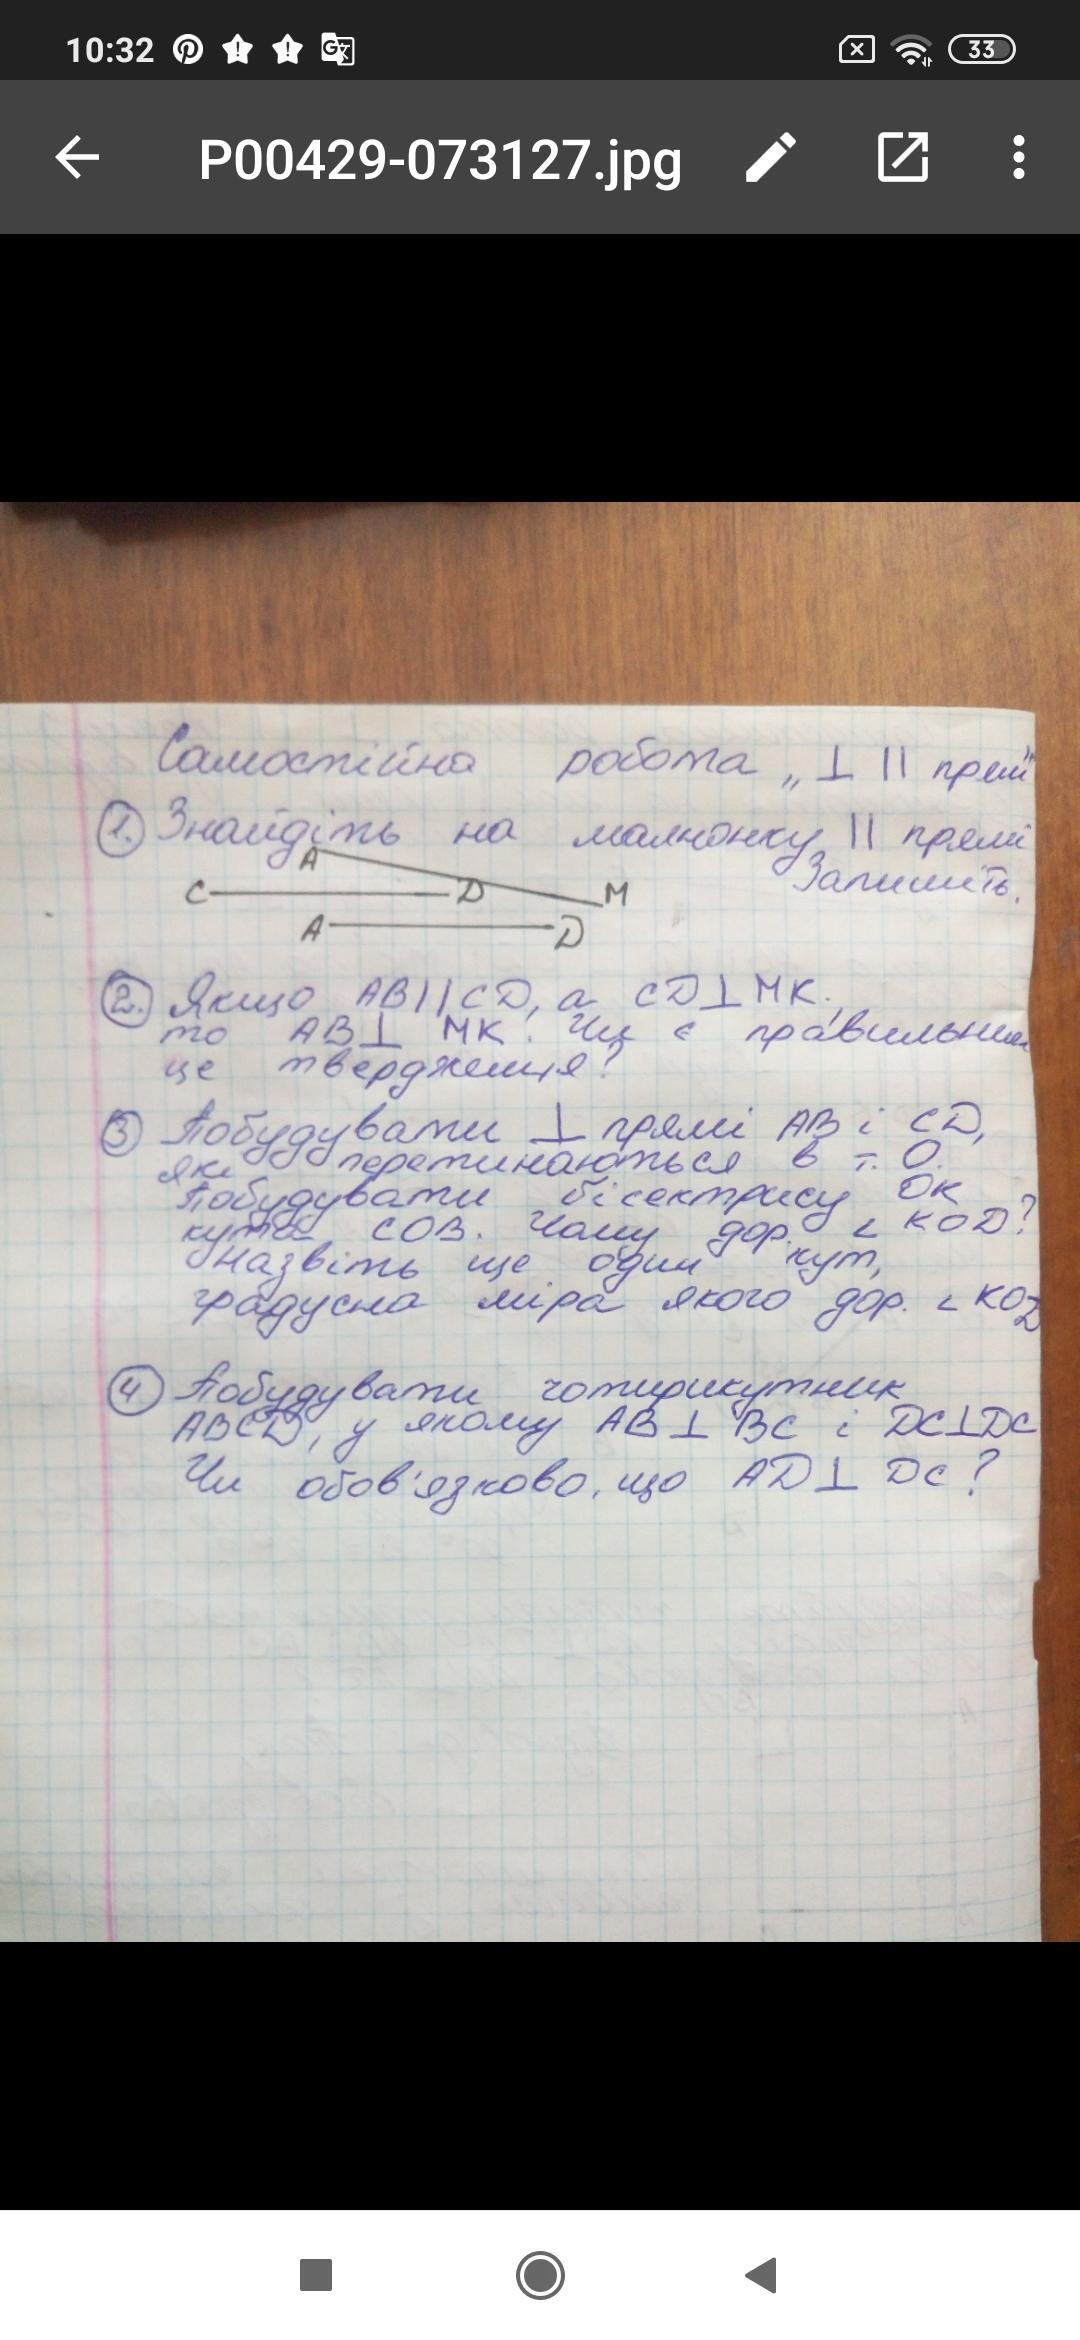 10:32
33
P00429-073127.jpg
Самостійна робота „⊥ || прямі"
1. Знайдіть на малюнку || прямі
Запишіть.
A
C D M
A D
2. Якщо AB||CD, а CD⊥MK,
то AB⊥ MK. Чи є правильним
це твердження?
3 Побудувати ⊥ прямі AB і CD,
які перетинаються в т. O.
Побудувати бісектрису OK
кута COB. Чому дор. ∠ KOD?
Назвіть ще один кут,
градусна міра якого дор. ∠ KOD
4 Побудувати чотирикутник
ABCD, у якому AB⊥ BC і DC⊥DC
Чи обов'язково, що AD⊥ DC?